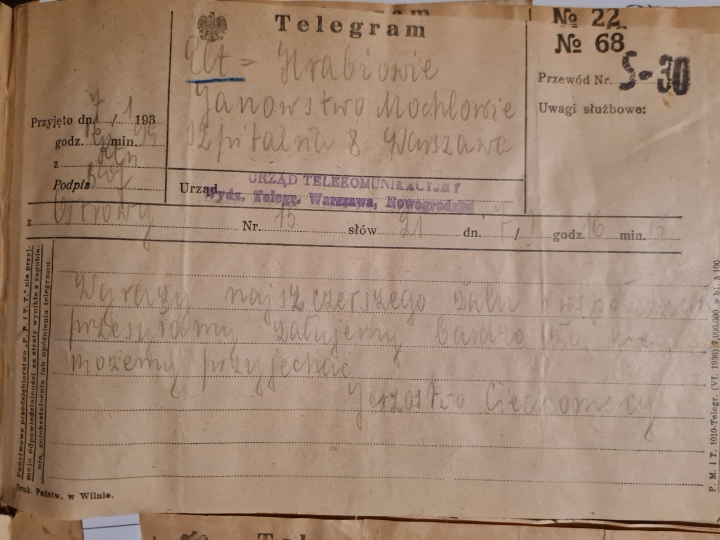 Telegram
№ 22
№ 68
S-30
Przewód Nr.
Uwagi służbowe:
Elt = Hrabiowie
Janowstwo Mochlowie
Szpitalna 8 Warszawa
Przyjęto dn. 7/1 193
godz. min.
z
Podpis
Urząd
URZĄD TELEKOMUNIKACYJNY
Wydz. Telegr. Warszawa, Nowogrodzka
z Ostrowy Nr. 15 słów 21 dn. 7/1 godz. 16 min. 15
Wyrazy najszczerszego żalu i współczucia
przesyłamy żałujemy bardzo że nie
możemy przyjechać
Jerzostwo Ciechomscy
Państwowe przedsiębiorstwo „P. P. i T. T." nie przyj-
muje odpowiedzialności za straty wynikłe z zagubie-
nia, zniekształcenia lub opóźnienia telegramu.
Druk. Państw. w Wilnie.
P. M i T. 1010-Telegr. (VI. 1938)